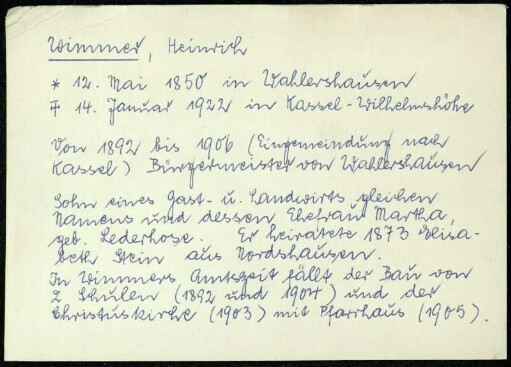 Wimmer, Heinrich
* 12. Mai 1850 in Wahlershausen
✝ 14. Januar 1922 in Kassel-Wilhelmshöhe
Von 1892 bis 1906 (Eingemeindung nach
Kassel) Bürgermeister von Wahlershausen
Sohn eines Gast- u. Landwirts gleichen
Namens und dessen Ehefrau Martha,
geb. Lederhose. Er heiratete 1873 Elisa-
beth Stein aus Nordshausen.
In Wimmers Amtszeit fällt der Bau von
2 Schulen (1892 und 1904) und der
Christuskirche (1903) mit Pfarrhaus (1905).